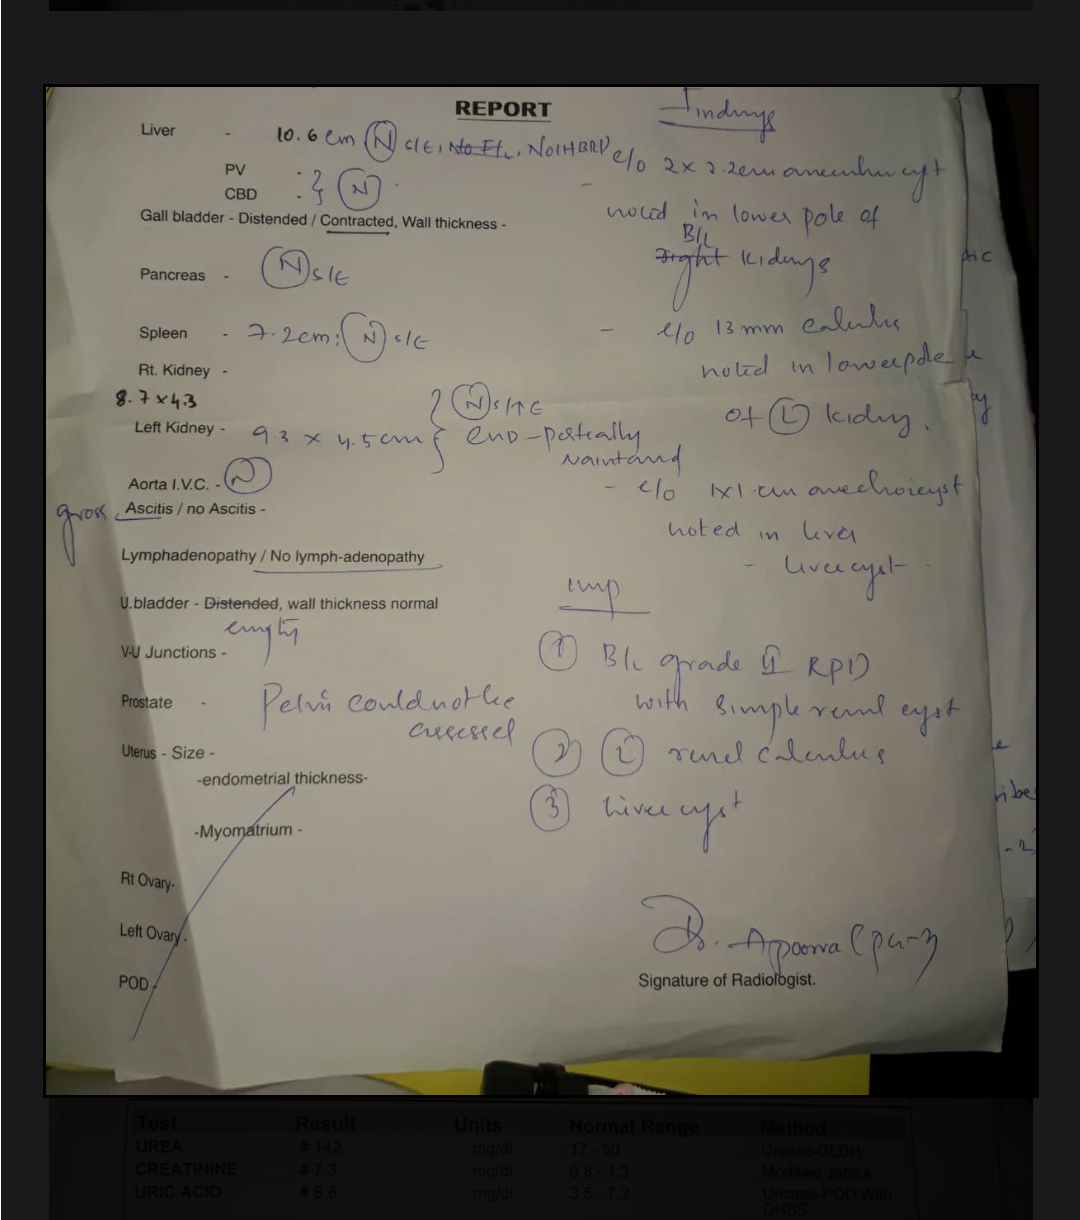 REPORT
Liver - 10.6 cm (N) S/E, No FL, No IHBRD
PV :
CBD : } (N)
Gall bladder - Distended / Contracted, Wall thickness -
Pancreas - (N) S/E
Spleen - 7.2cm; (N) S/E
Rt. Kidney -
8.7 x 4.3
Left Kidney - 9.3 x 4.5 cm } (N) S/E
-partially
Aorta I.V.C. - (N)
gross Ascitis / no Ascitis -
Lymphadenopathy / No lymph-adenopathy
U.bladder - Distended, wall thickness normal
empty
V-U Junctions -
Prostate - Pelvis could not be
assessed
Uterus - Size -
-endometrial thickness-
-Myomatrium -
Rt Ovary-
Left Ovary-
POD-
Findings
- e/o 2 x 2.2cm cyst
noted in lower pole of
B/L
right kidneys
- e/o 13 mm calculus
noted in lower pole
of (L) kidney.
- e/o 1x1 cm anechoic cyst
noted in liver
- liver cyst
imp
(1) B/L grade II RPD
with simple renal cyst
(2) (L) renal calculus
(3) Liver cyst
Dr. Apoorva
Signature of Radiologist.
Test Result Units Normal Range Method
UREA # 142 mg/dl 17 - 50 Urease-GLDH
CREATININE # 7.3 mg/dl 0.8 - 1.3 Modified Jaffe's
URIC ACID # 8.8 mg/dl 3.5 - 7.2 Uricase-POD With
DHBS